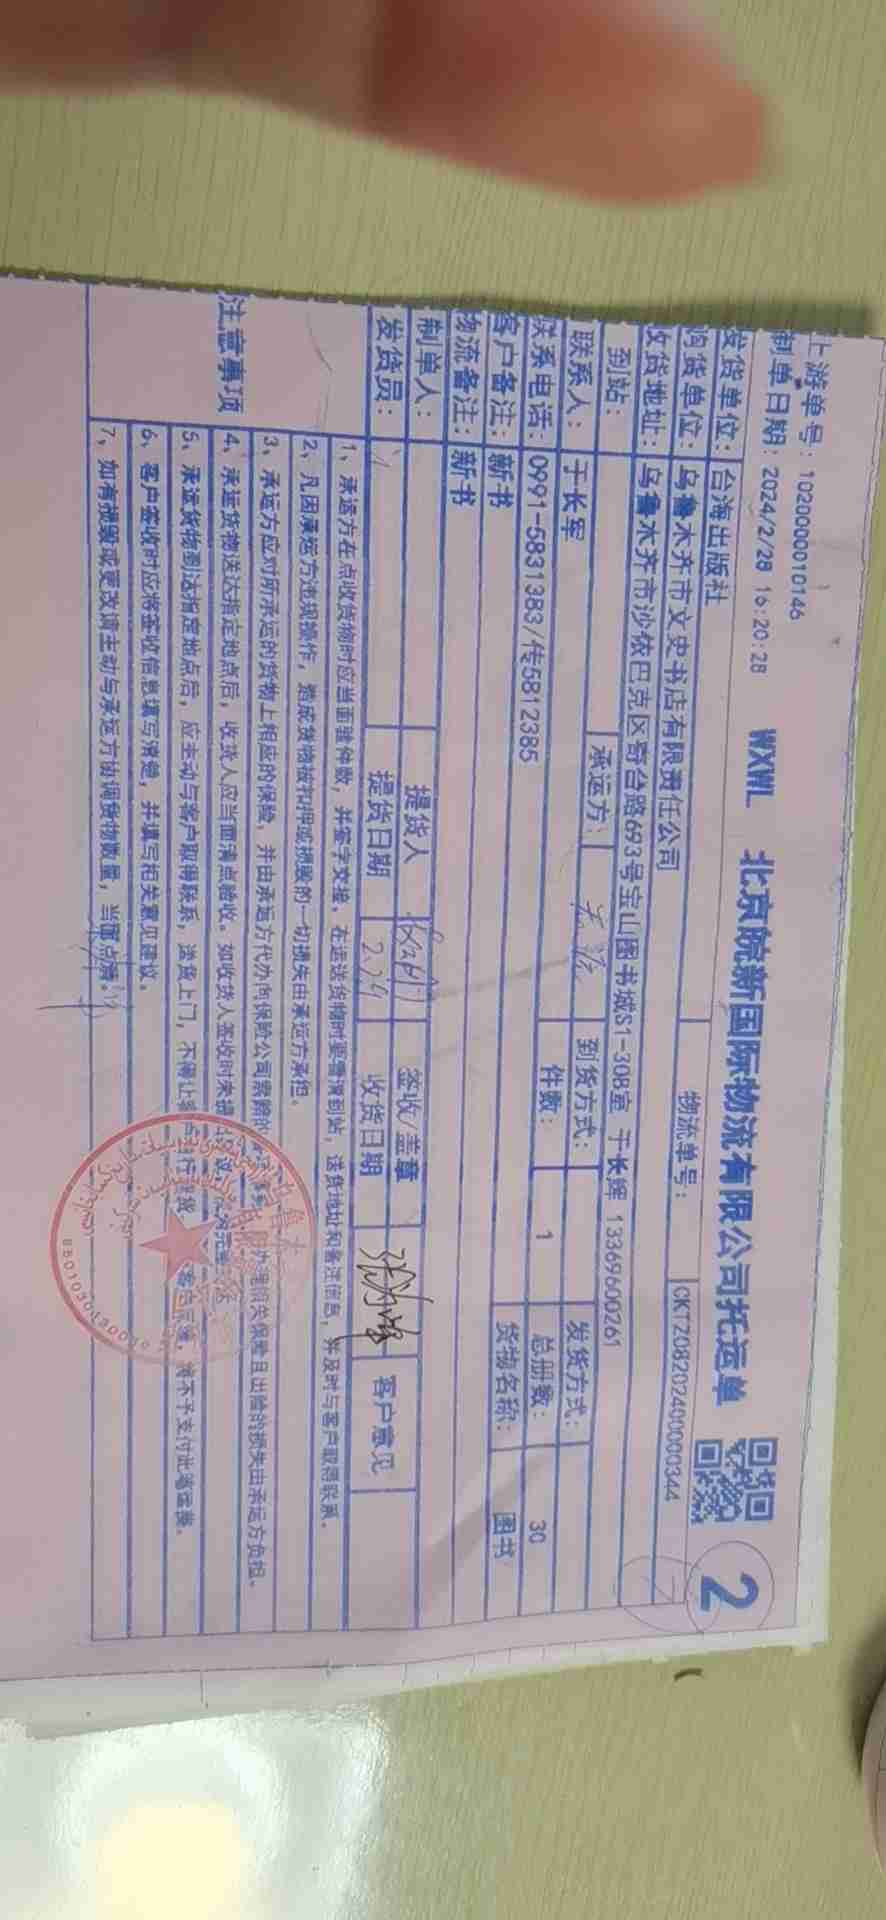 上游单号：1020000010146
制单日期：2024/2/28 16:20:28 WXWL 北京皖新国际物流有限公司托运单 2
发货单位：台海出版社 物流单号：CKTZ082024000000344
购货单位：乌鲁木齐市文史书店有限责任公司
收货地址：乌鲁木齐市沙依巴克区奇台路693号宝山图书城S1-308室 于长辉 13369600261
到站： 承运方： 到货方式： 发货方式：
联系人：于长军 件数：1 总册数：30
联系电话：0991-5831383/传5812385 货物名称：图书
客户备注：新书
物流备注：新书
制单人： 提货人 签收/盖章 客户意见
发货员： 提货日期 2.29 收货日期
注意事项
1、承运方在点收货物时应当面验件数，并签字交接，在运送货物时要看清到站，送货地址和备注信息，并及时与客户取得联系。
2、凡因承运方违规操作，造成货物被扣押或损毁的一切损失由承运方承担。
3、承运方应对所承运的货物上相应的保险，并由承运方代办向保险公司索赔的 办理相关保险且出险的损失由承运方负担。
4、承运货物送达指定地点后，收货人应当面清点验收。如收货人签收时未提
5、承运货物到达指定地点后，应主动与客户取得联系，送货上门，不得让 客户 将不予支付此笔运费。
6、客户签收时应将签收信息填写清楚，并填写相关意见建议。
7、如有损毁或更改请主动与承运方协调货物数量，当面点清。